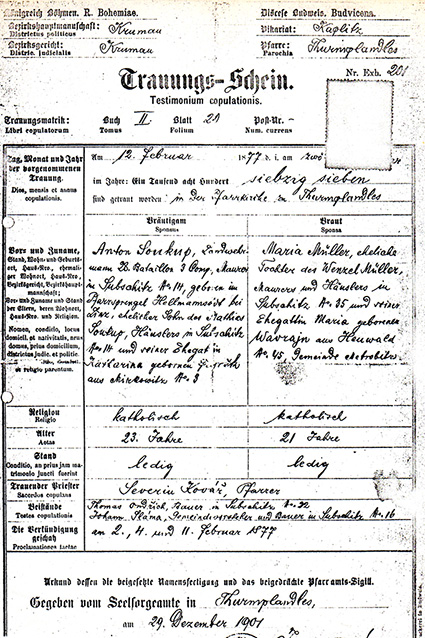 Königreich Böhmen. R. Bohemiae.
Diöcese Budweis. Budvicens.
Bezirkshauptmannschaft: Krumau
Districtus politicus
Vikariat: Kaplitz
Bezirksgericht: Krumau
Distric. judicialis
Pfarre: Thurmplandles
Parochia
Nr. Exh. 201
Trauungs-Schein.
Testimonium copulationis.
Trauungsmatrik: Buch II Blatt 21 Post-Nr. -
Libri copulatorum Tomus Folium Num. currens
Tag, Monat und Jahr
der vorgenommenen
Trauung.
Dies, mensis et annus
copulationis.
Am 12. Februar 1877 d. i. am
im Jahre: Ein Tausend acht Hundert siebzig sieben
sind getraut worden in der Pfarrkirche zu Thurmplandles
Bräutigam
Sponsus
Braut
Sponsa
Vor- und Zuname,
Stand, Wohn- und Geburts-
ort, Haus-Nro., ehemali-
ger Wohnort, Haus-Nro.,
Bezirksgericht, Bezirkshaupt-
mannschaft,
Vor- und Zuname und Stand
der Eltern, deren Wohnort,
Haus-Nro. und Religion.
Nomen, conditio, locus
domicil. et nativitatis, neu
domus, prius domicilium,
districtus judic. et politic.
et religio parentum.
Anton Soukup, Landwehr-
mann 28. Bataillon 3 Comp., Maurer
in Subschitz No. 14, geboren in
Pfarrsprengel Hellmonsödt bei
Linz, ehelicher Sohn des Mathias
Soukup, Häuslers in Subschitz
No. 14 und seiner Ehegattin
Katharina gebornen
aus Mirkowitz No. 3
Maria Müller, eheliche
Tochter des Wenzel Müller,
Maurers und Häuslers in
Subschitz No. 35 und seiner
Ehegattin Maria gebornen
Wavrajn aus Neuwald
No. 45, Gemeinde
Religion
Religio
katholisch
katholisch
Alter
Aetas
23. Jahre
21 Jahre
Stand
Conditio, an prius jam ma-
trimonio juncti fuerint
ledig
ledig
Trauender Priester
Sacerdos copulans
Severin Kovář, Pfarrer
Beistände
Testes copulationis
Thomas Ondřich, Bauer in Subschitz No. 32
Johann Sláma, Gemeindevorsteher und Bauer in Subschitz No. 16
Die Verkündigung
geschah
Proclamationes factae
am 2., 4. und 11. Februar 1877
Urkund dessen die beigesetzte Namensfertigung und das beigedrückte Pfarramts-Sigill.
Gegeben vom Seelsorgeamte in Thurmplandles,
am 29. Dezember 1901